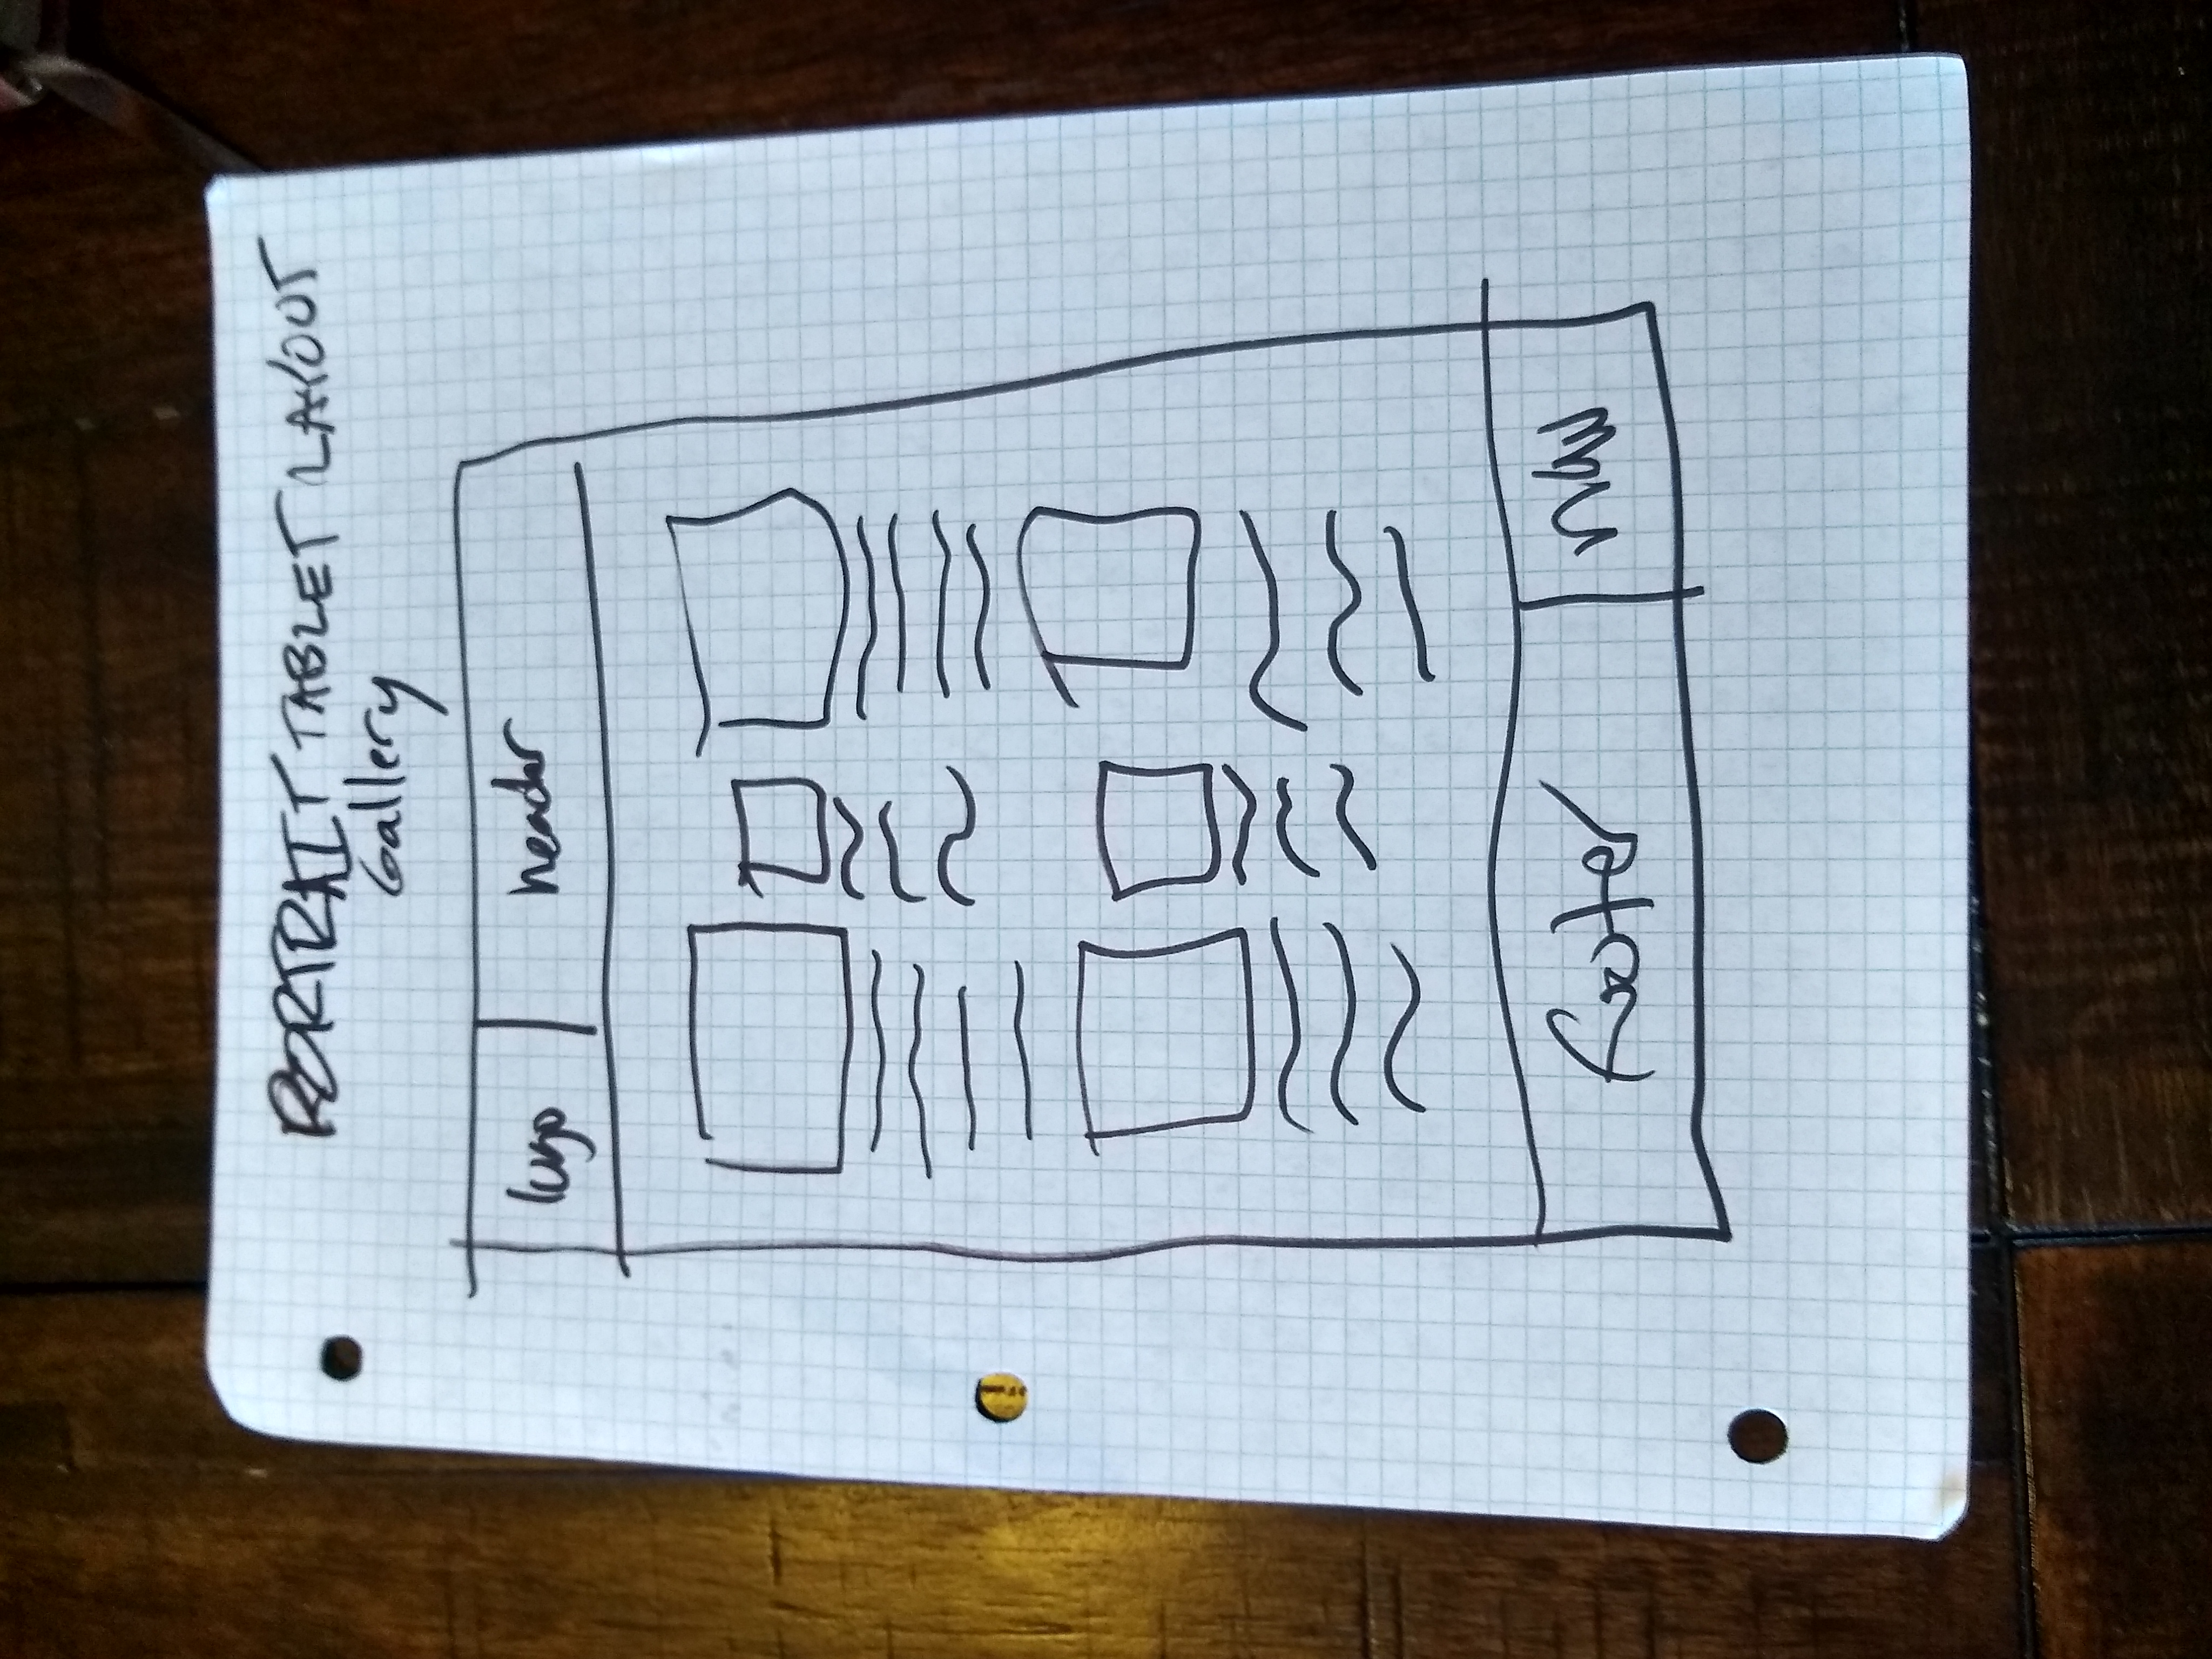 PORTRAIT TABLET LAYOUT
Gallery
logo header
Footer